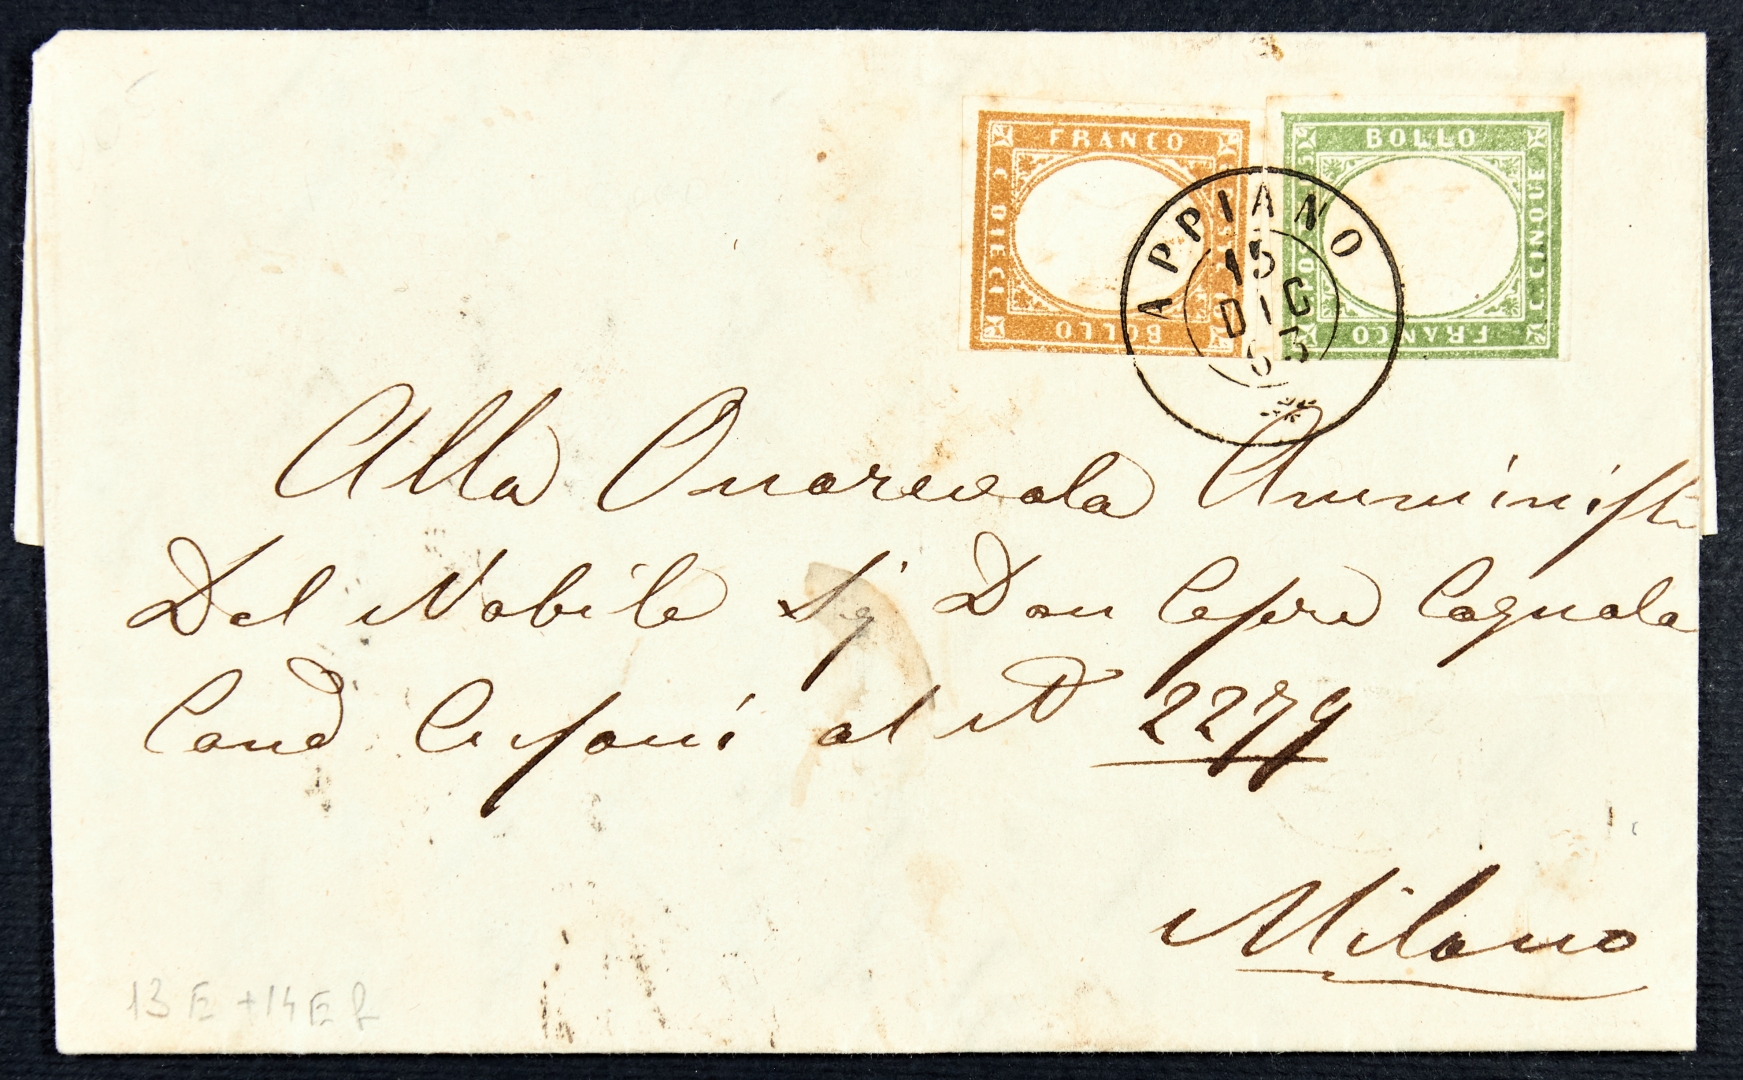 FRANCO
C. DIECI
BOLLO
POSTE
BOLLO
C. CINQUE
FRANCO
APPIANO
15
DIC
63
Alla Onorevola Amminist
Del Nobile Sig Don Cesere Cagnola
Cond Cusani al N 2279
Milano
13E + 14E